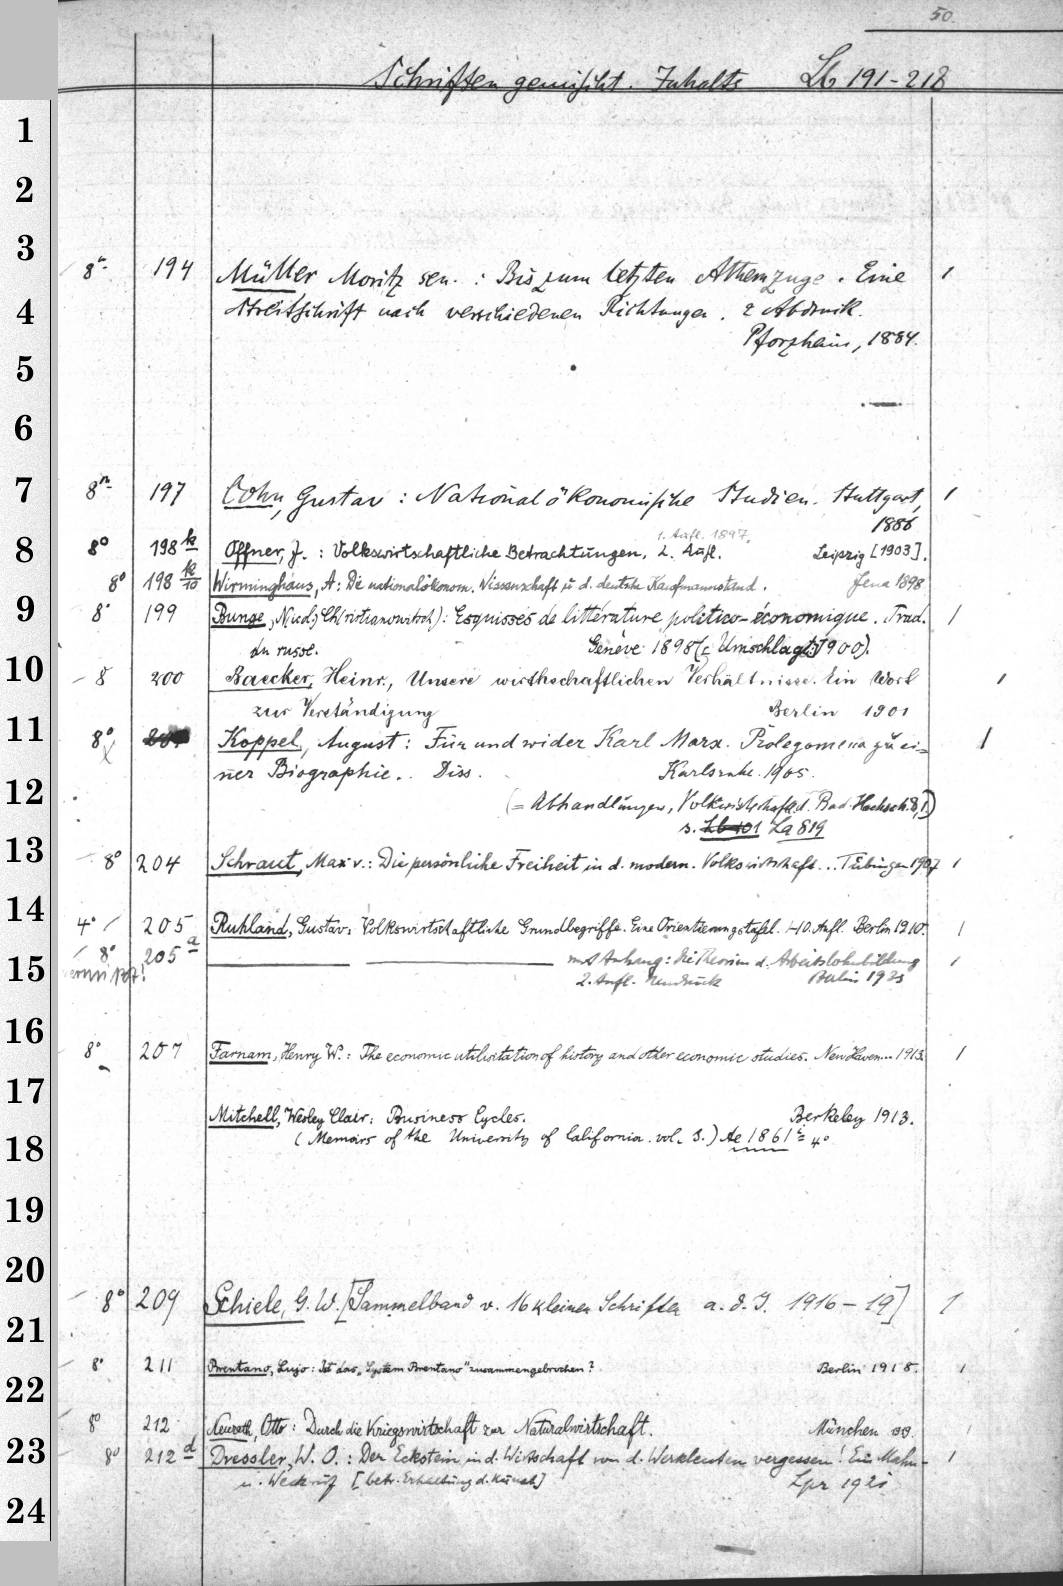 50.
Schriften gemischt. Inhalts Lb 191-218
1
2
3
8° 194 Müller Moritz sen. : Bis zum letzten Athemzuge. Eine 1
4
Streitschrift nach verschiedenen Richtungen. 2 Abdruck.
Pforzheim, 1884.
5
6
7
8° 197 Cohn, Gustav : Nationalökonomische Studien. Stuttgart, 1
1886
1. Aufl. 1897.
8
8° 198 k Offner, J. : Volkswirtschaftliche Betrachtungen, 2. Aufl. Leipzig [1903].
8° 198 k/10 Wirminghaus, A: Die nationalökonom. Wissenschaft u. d. deutsche Kaufmannsstand. Jena 1898
9
8° 199 Bunge, Nicol. Ch(ristianowitsch): Esquisses de littérature politico-économique. Trad. 1
du russe. Genève 1898 (: Umschlagt: 1900).
10
8 200 Baecker, Heinr., Unsere wirthschaftlichen Verhältnisse. Ein Wort 1
zur Verständigung Berlin 1901
11
8° Koppel, August: Für und wider Karl Marx. Prolegomena zu ei= 1
ner Biographie.. Diss. Karlsruhe. 1905.
12
(= Abhandlungen, Volkswirtschaftl. d. Bad. Hochsch. 8,1)
s. Lb 401 La 819
13
8° 204 Schraut, Max v.: Die persönliche Freiheit in d. modern. Volkswirtschaft... Tübingen 1907 1
14
4° 205 Ruhland, Gustav: Volkswirtschaftliche Grundbegriffe. Eine Orientierungstafel. 1-10. Aufl. Berlin 1910. 1
8° 205 a mit Anhang: Die Theorien d. Arbeitslohnbildung 1
15
2. Aufl. Neudruck Berlin 1923
16
8° 207 Farnam, Henry W.: The economic utilization of history and other economic studies. New Haven... 1913. 1
17
Mitchell, Wesley Clair: Business Cycles. Berkeley 1913.
18
(Memoirs of the University of California. vol. 3.) Ae 1861 i = 4°
19
20
8° 209 Schiele, G. W. [Sammelband v. 16 kleinen Schriften a. d. J. 1916 – 19] 1
21
8° 211 Brentano, Lujo: Ist das „System Brentano" zusammengebrochen? Berlin 1918. 1
22
8° 212 Neurath, Otto: Durch die Kriegswirtschaft zur Naturalwirtschaft. München 1919. 1
23
8° 212 d Dressler, W. O.: Der Eckstein in d. Wirtschaft von d. Werkleuten vergessen! Ein Mahn- 1
u. Weckruf [betr. Erhaltung d. Kunst] Lpz 1921
24